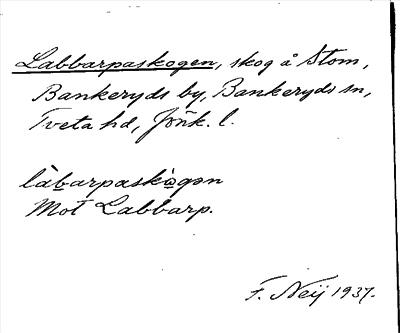 Labbarpaskogen, skog å Stom,
Bankeryds by, Bankeryds sn,
Tveta hd, Jönk. l.
làbarpaskògən
Mot Labbarp.
F. Neij 1937.